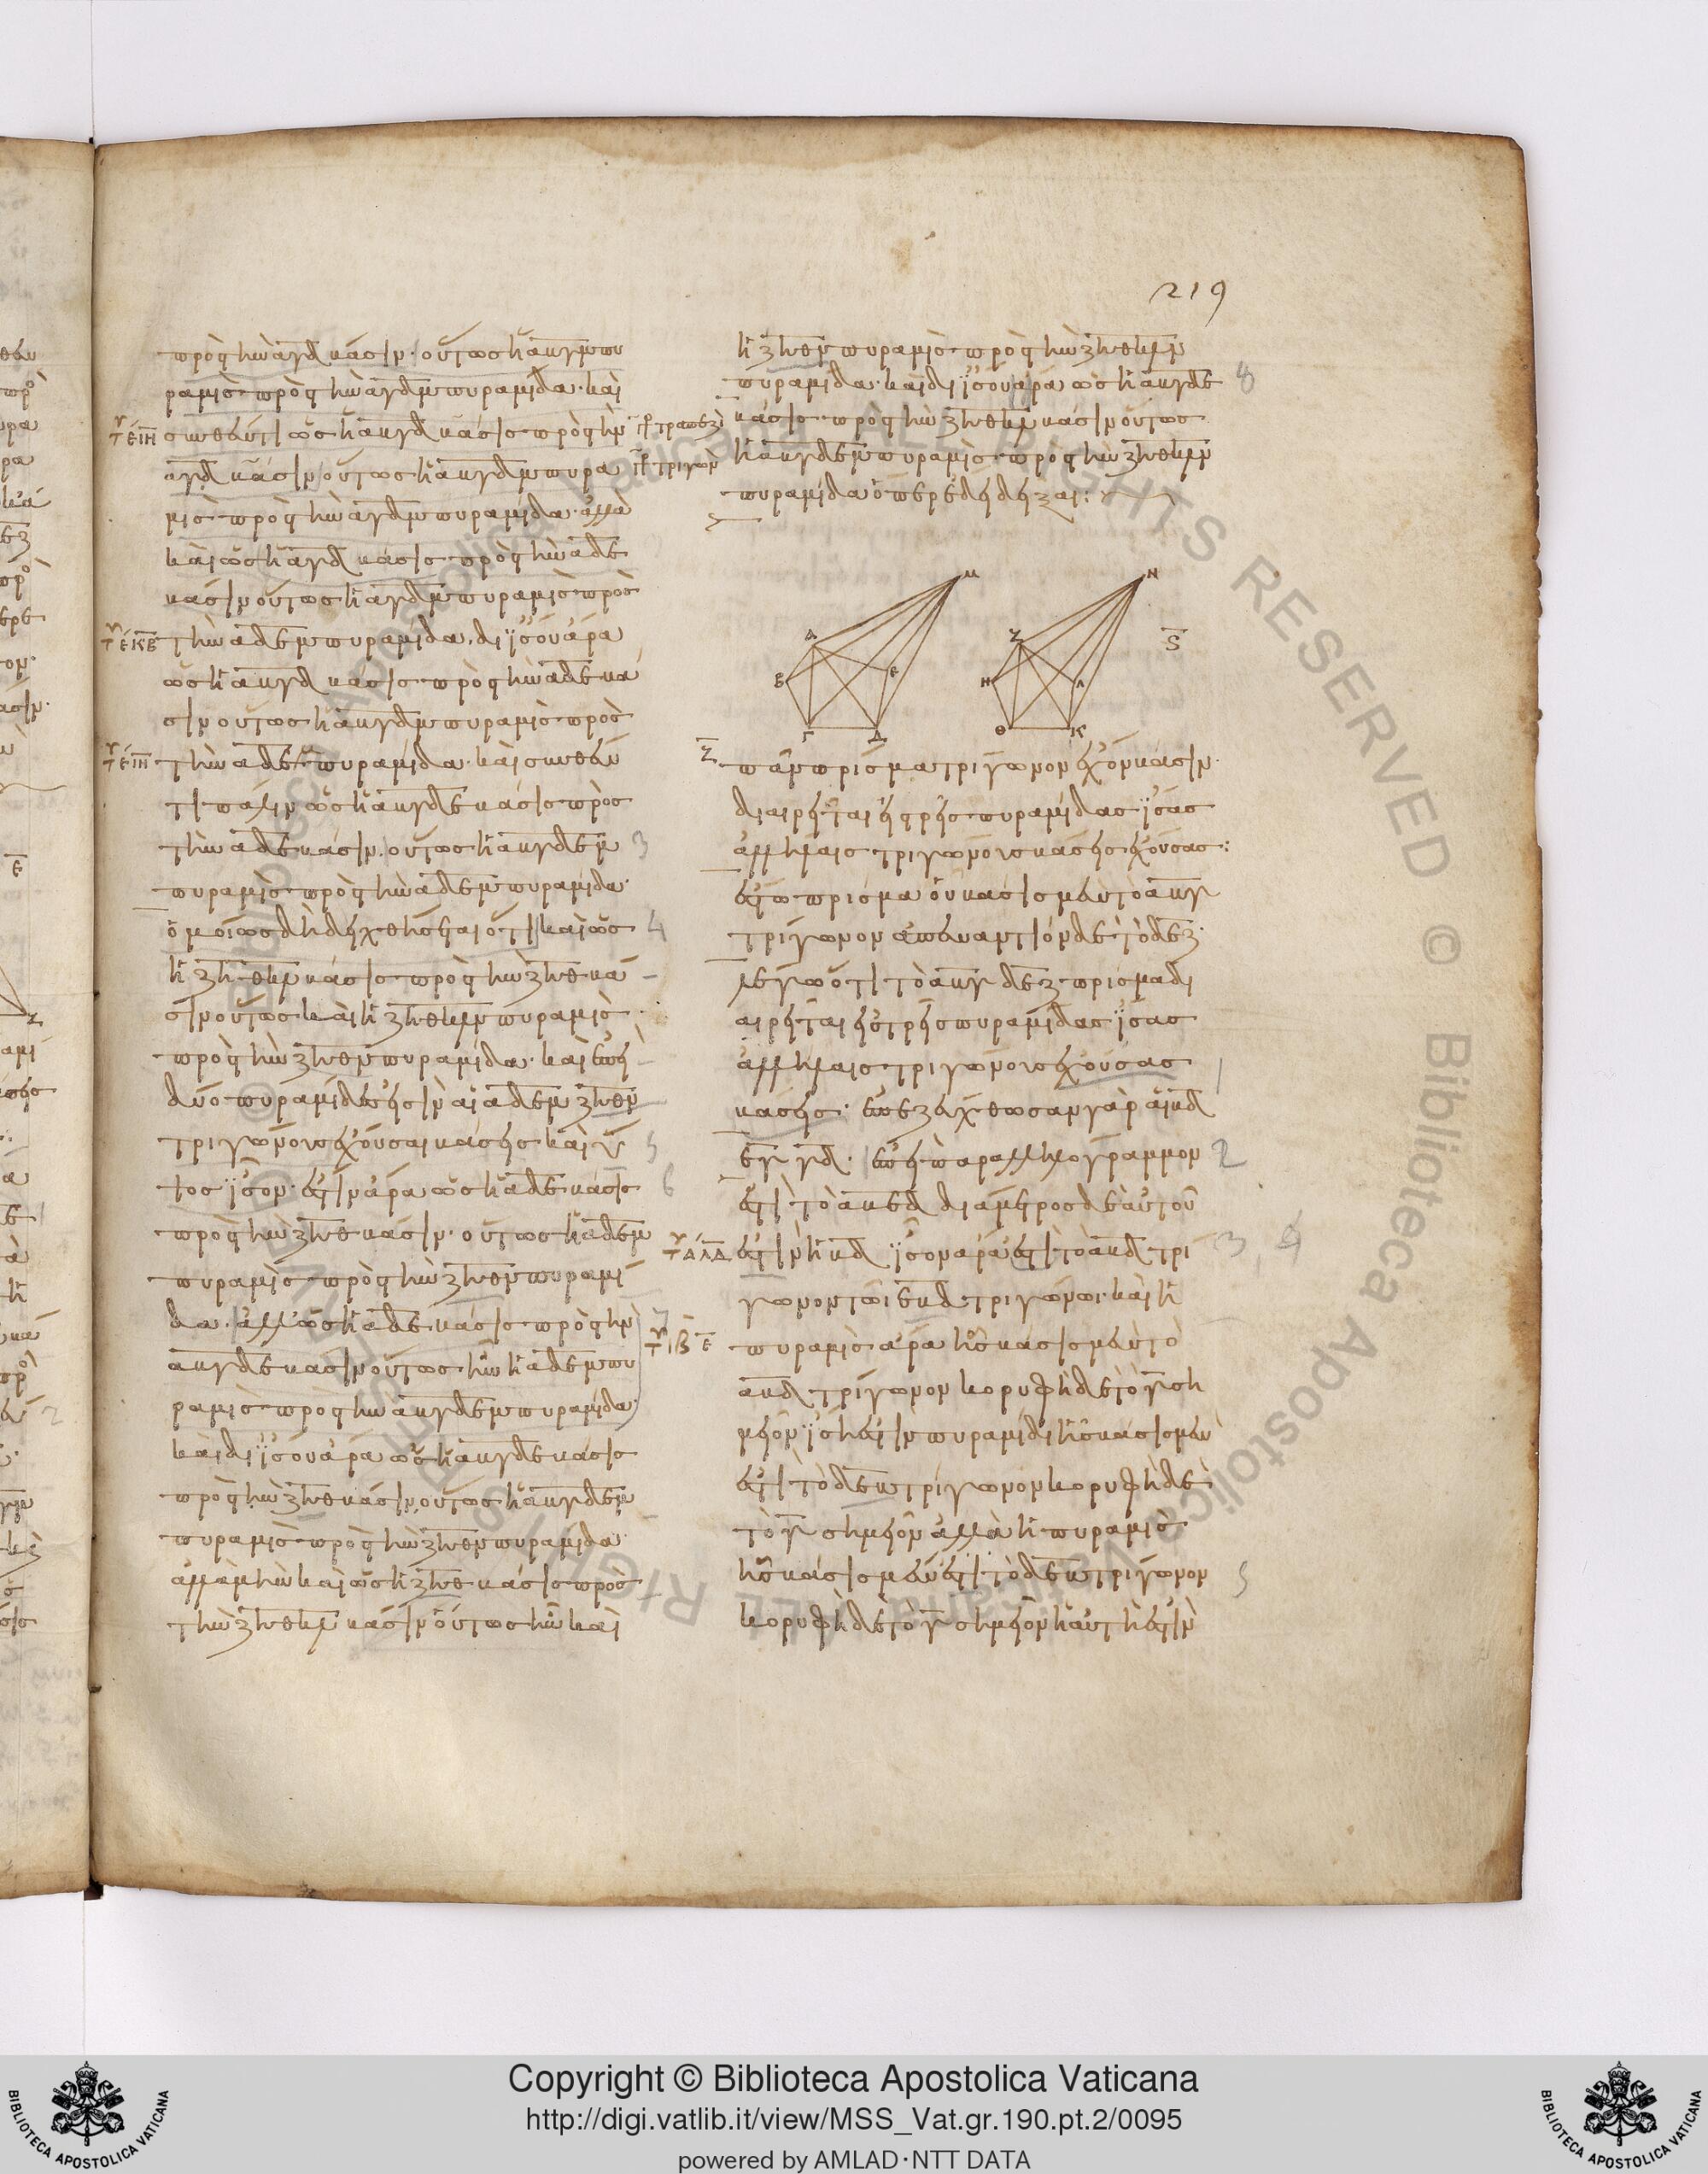 219
πρὸς τὴν ΑΓΔ βάσιν· οὕτως ἡ ΑΒΓΜ πυ
ραμὶς πρὸς τὴν ΑΓΔΜ πυραμίδα· καὶ
συνθέντι ὡς ἡ ΑΒΓΔ βάσις πρὸς τὴν
ΑΓΔ βάσιν οὕτως ἡ ΑΒΓΔΜ πυρα
μὶς πρὸς τὴν ΑΓΔΜ πυραμίδα· ἀλλὰ
καὶ ὡς ἡ ΑΓΔ βάσις πρὸς τὴν ΑΔΕ
βάσιν οὕτως ἡ ΑΓΔΜ πυραμὶς πρὸς
τὴν ΑΔΕΜ πυραμίδα. δι ἴσου ἄρα
ὡς ἡ ΑΒΓΔ βάσις πρὸς τὴν ΑΔΕ βά
σιν οὕτως ἡ ΑΒΓΔΜ πυραμὶς πρὸς
τὴν ΑΔΕΜ πυραμίδα· καὶ συνθέν
τι πάλιν ὡς ἡ ΑΒΓΔΕ βάσις πρὸς
τὴν ΑΔΕ βάσιν. οὕτως ἡ ΑΒΓΔΕΜ
πυραμὶς πρὸς τὴν ΑΔΕΜ πυραμίδα·
ὁμοίως δὴ δειχθήσεται ὅτι καὶ ὡς
ἡ ΖΗΘΚΛ βάσις πρὸς τὴν ΖΗΘ βά
σιν οὕτως καὶ ἡ ΖΗΘΚΛΝ πυραμὶς
πρὸς τὴν ΖΗΘΝ πυραμίδα· καὶ ἐπεὶ
δύο πυραμίδες εἰσὶν αἱ ΑΔΕΜ ΖΗΘΝ
τριγώνους ἔχουσαι βάσεις καὶ ὕ
ψος ἴσον· ἔστιν ἄρα ὡς ἡ ΑΔΕ βάσις
πρὸς τὴν ΖΗΘ βάσιν· οὕτως ἡ ΑΔΕΜ
πυραμὶς πρὸς τὴν ΖΗΘΝ πυραμί
δα· ἀλλ ὡς ἡ ΑΔΕ βάσις πρὸς τὴν
ΑΒΓΔΕ βάσιν οὕτως ἦν ἡ ΑΔΕΜ πυ
ραμὶς πρὸς τὴν ΑΒΓΔΕΜ πυραμίδα·
καὶ δι ἴσου ἄρα ὡς ἡ ΑΒΓΔΕ βάσις
πρὸς τὴν ΖΗΘ βάσιν οὕτως ἡ ΑΒΓΔΕΜ
πυραμὶς πρὸς τὴν ΖΗΘΝ πυραμίδα
ἀλλὰ μὴν καὶ ὡς ἡ ΖΗΘ βάσις πρὸς
τὴν ΖΗΘΚΛ βάσιν οὕτως ἦν καὶ
ἡ ΖΗΘΝ πυραμὶς πρὸς τὴν ΖΗΘΚΛΝ
πυραμίδα· καὶ δι ἴσου ἄρα ὡς ἡ ΑΒΓΔΕ
βάσις πρὸς τὴν ΖΗΘΚΛ βάσιν οὕτως
ἡ ΑΒΓΔΕΜ πυραμὶς πρὸς τὴν ΖΗΘΚΛΝ
πυραμίδα ὅπερ ἔδει δεῖξαι:
Μ Ν
Α Ζ
Β Ε Η Λ
Γ Δ Θ Κ
Ζ
πᾶν πρίσμα τρίγωνον ἔχον βάσιν·
διαιρεῖται εἰς τρεῖς πυραμίδας ἴσας
ἀλλήλαις τριγώνους βάσεις ἐχούσας:
ἔστω πρίσμα οὗ βάσις μὲν τὸ ΑΒΓ
τρίγωνον ἀπεναντίον δὲ τὸ ΔΕΖ·
λέγω ὅτι τὸ ΑΒΓΔΕΖ πρίσμα δι
αιρεῖται εἰς τρεῖς πυραμίδας ἴσας
ἀλλήλαις τριγώνους ἐχούσας
βάσεις· ἐπεζεύχθωσαν γὰρ αἱ ΒΔ
ΕΓ ΓΔ· ἐπεὶ παραλληλόγραμμόν
ἐστὶ τὸ ΑΒΕΔ διάμετρος δὲ αὐτοῦ
ἐστὶν ἡ ΒΔ ἴσον ἄρα ἐστὶ τὸ ΑΒΔ τρί
γωνον τῶι ΕΒΔ τριγώνωι· καὶ ἡ
πυραμὶς ἄρα ἧς βάσις μὲν τὸ
ΑΒΔ τρίγωνον κορυφὴ δὲ τὸ Γ ση
μεῖον ἴση ἐστὶν πυραμίδι ἧς βάσις μέν
ἐστὶ τὸ ΔΕΒ τρίγωνον κορυφὴ δὲ
τὸ Γ σημεῖον ἀλλὰ ἡ πυραμὶς
ἧς βάσις μέν ἐστι τὸ ΔΕΒ τρίγωνον
κορυφὴ δὲ τὸ Γ σημεῖον ἡ αὐτή ἐστιν
Copyright © Biblioteca Apostolica Vaticana
http://digi.vatlib.it/view/MSS_Vat.gr.190.pt.2/0095
powered by AMLAD·NTT DATA
BIBLIOTECA APOSTOLICA VATICANA
BIBLIOTECA APOSTOLICA VATICANA